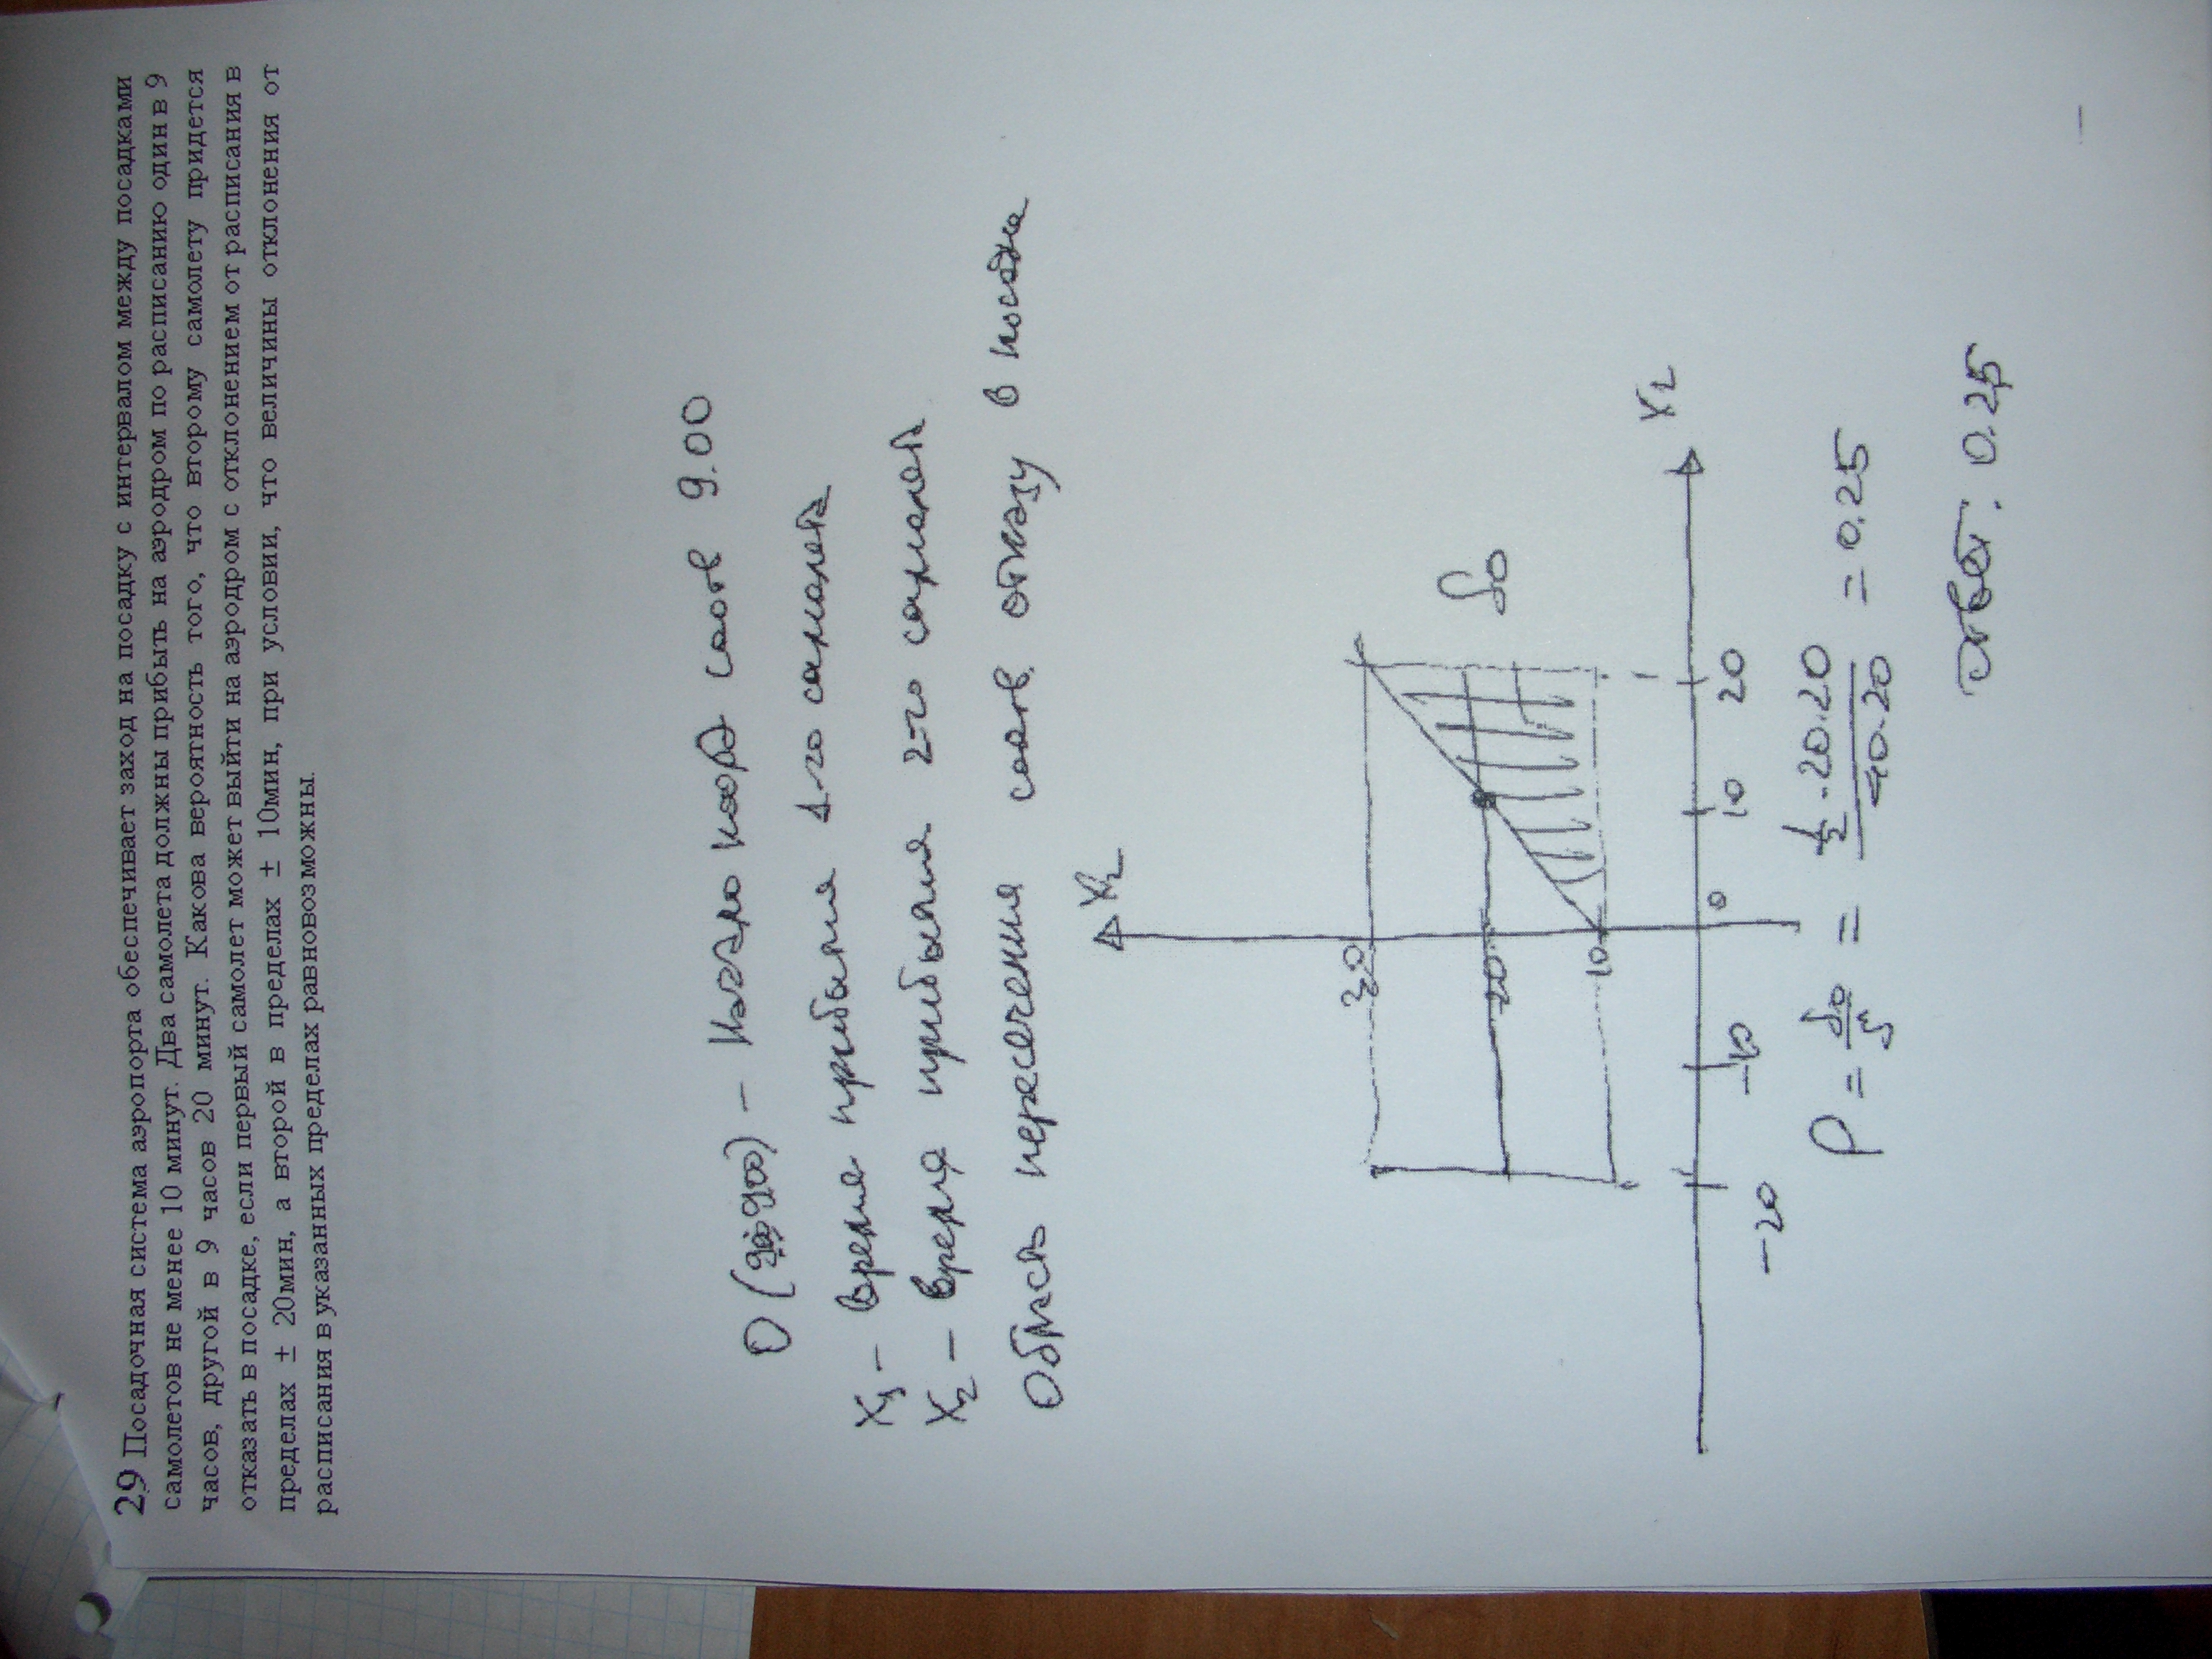 29 Посадочная система аэропорта обеспечивает заход на посадку с интервалом между посадками
самолетов не менее 10 минут. Два самолета должны прибыть на аэродром по расписанию один в 9
часов, другой в 9 часов 20 минут. Какова вероятность того, что второму самолету придется
отказать в посадке, если первый самолет может выйти на аэродром с отклонением от расписания в
пределах ± 20мин, а второй в пределах ± 10мин, при условии, что величины отклонения от
расписания в указанных пределах равновозможны.
0 (900) – начало коорд соотв 9.00
X1 – время прибытия 1-го самолета
X2 – время прибытия 2-го самолета
Область пересечения соотв. отказу в посадке
X2
30
20
10
S0
X1
-20
-10
0
10
20
P = S0/S = 1/2 · 20·20 / 40·20 = 0.25
Ответ: 0.25